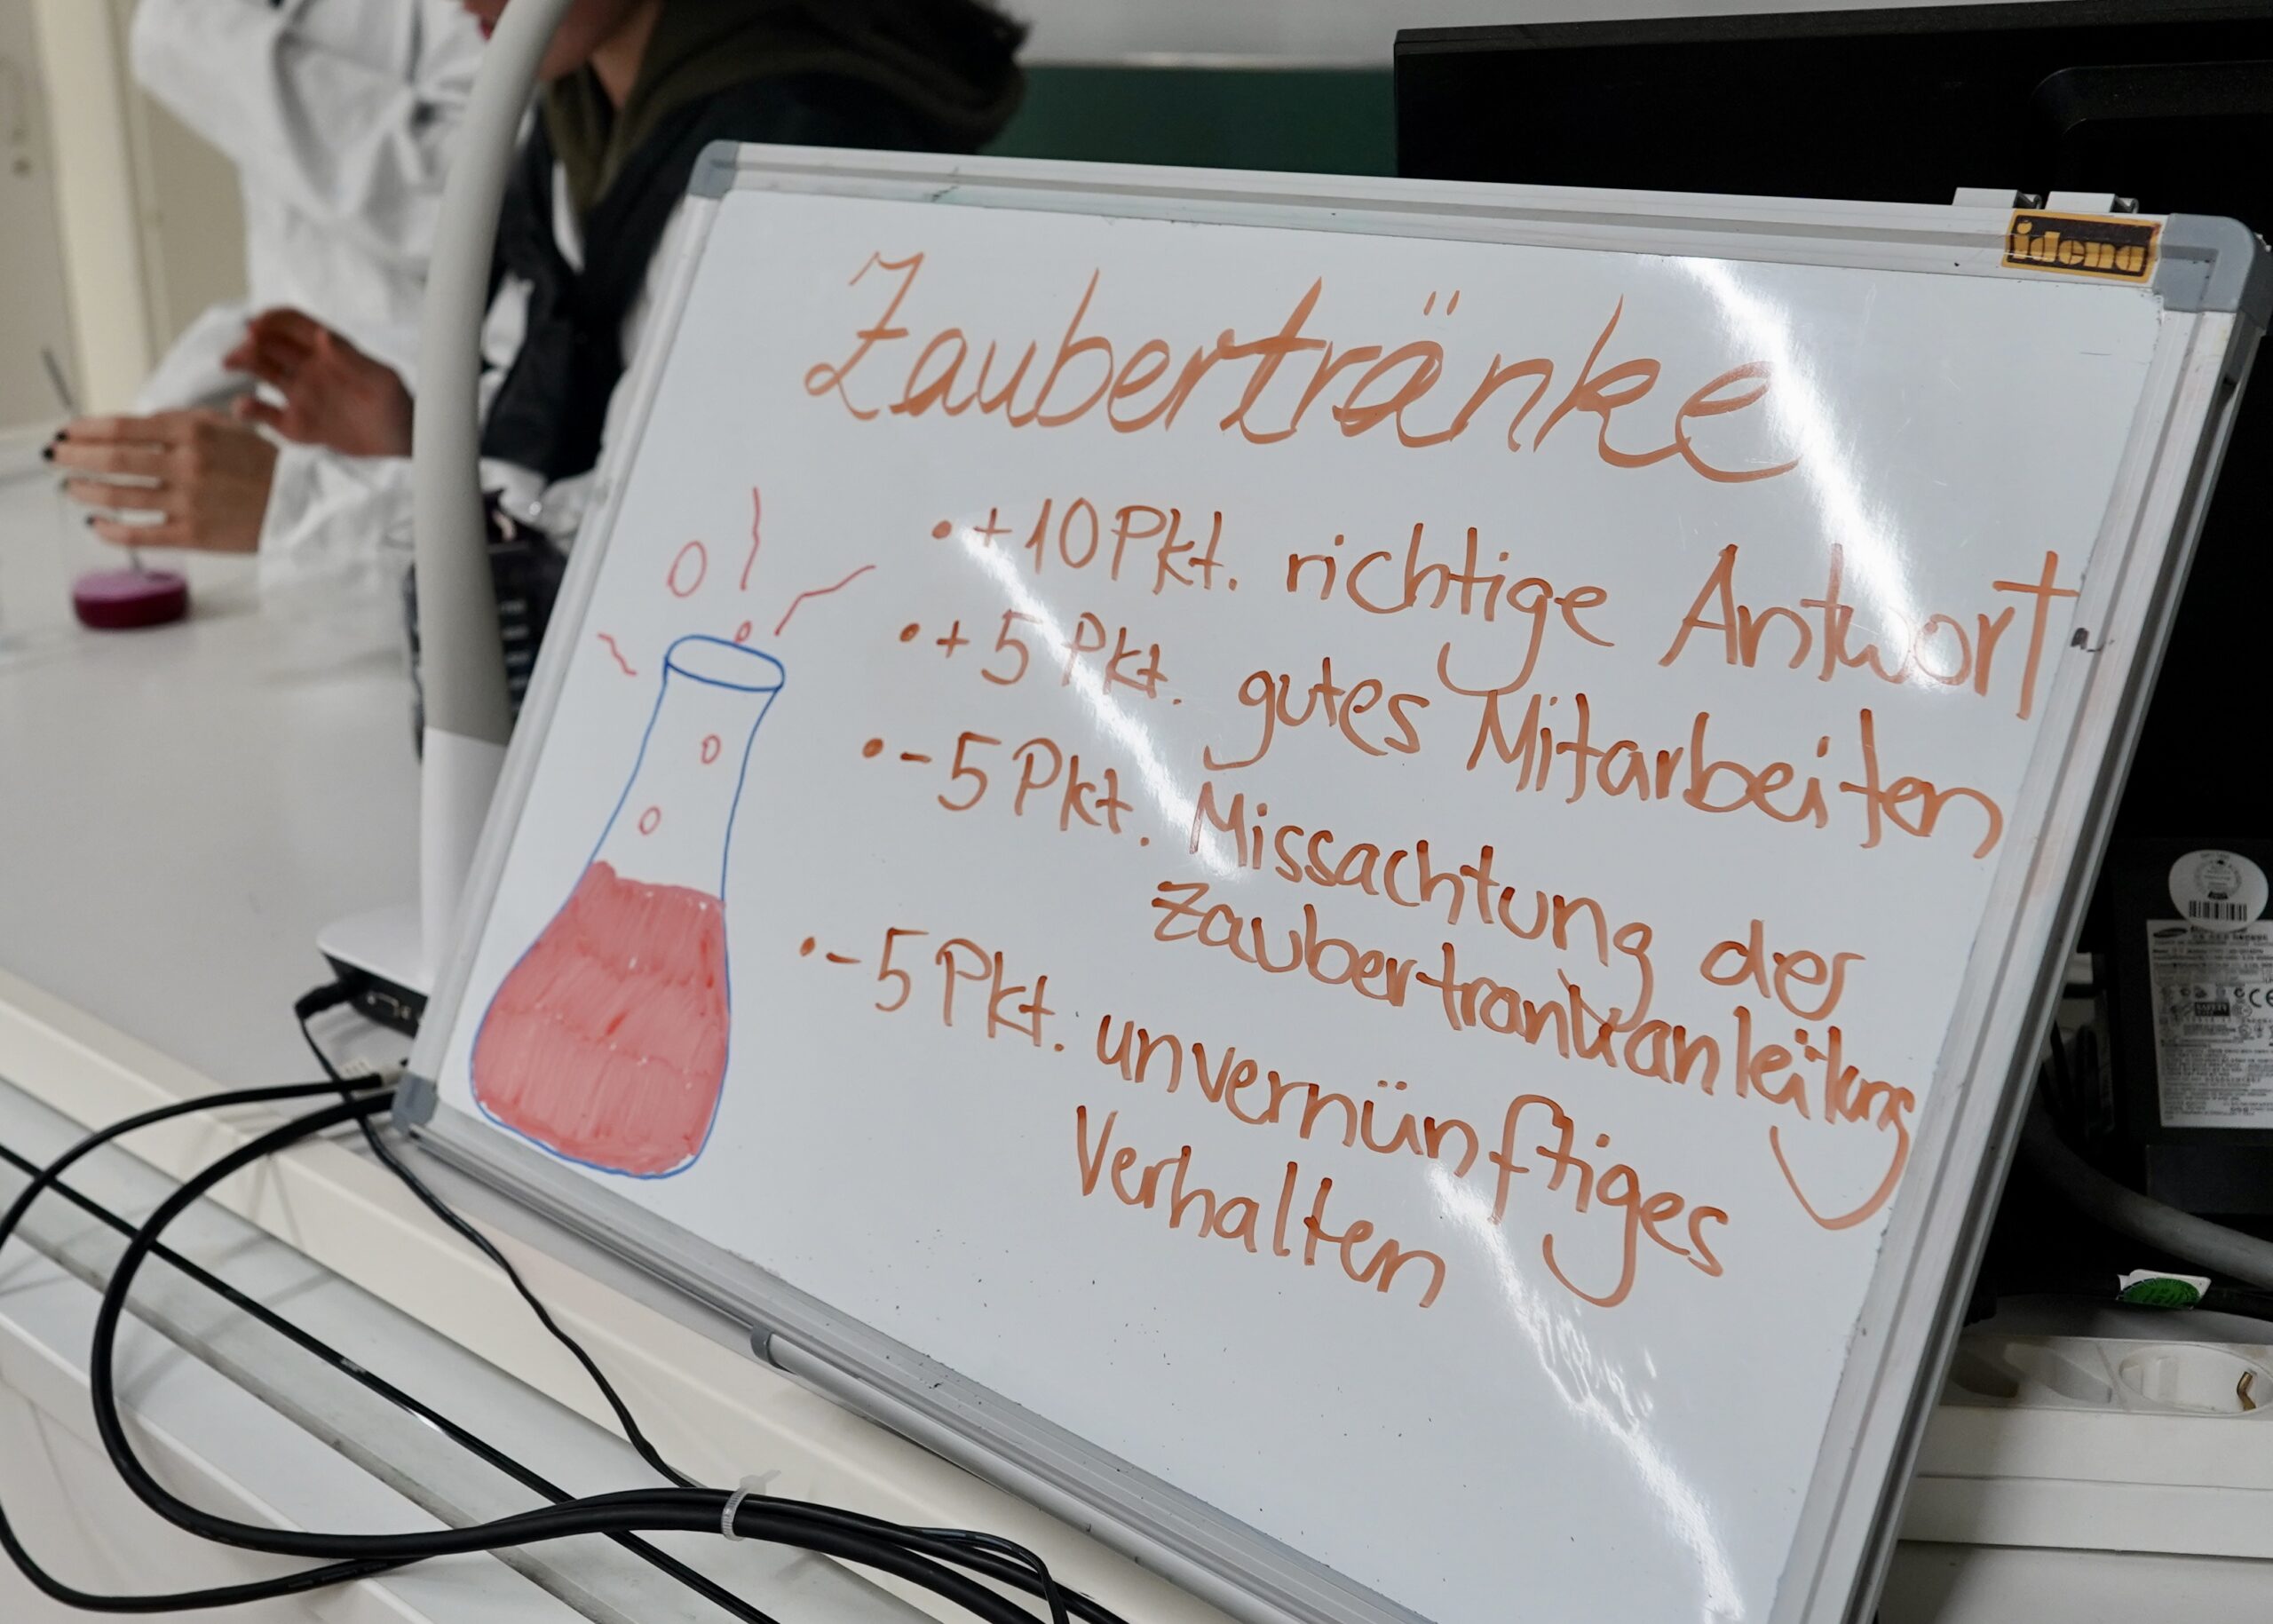 idena
Zaubertränke
• +10 Pkt. richtige Antwort
• + 5 Pkt. gutes Mitarbeiten
• - 5 Pkt. Missachtung der
Zaubertrankanleitung
• - 5 Pkt. unvernünftiges
Verhalten